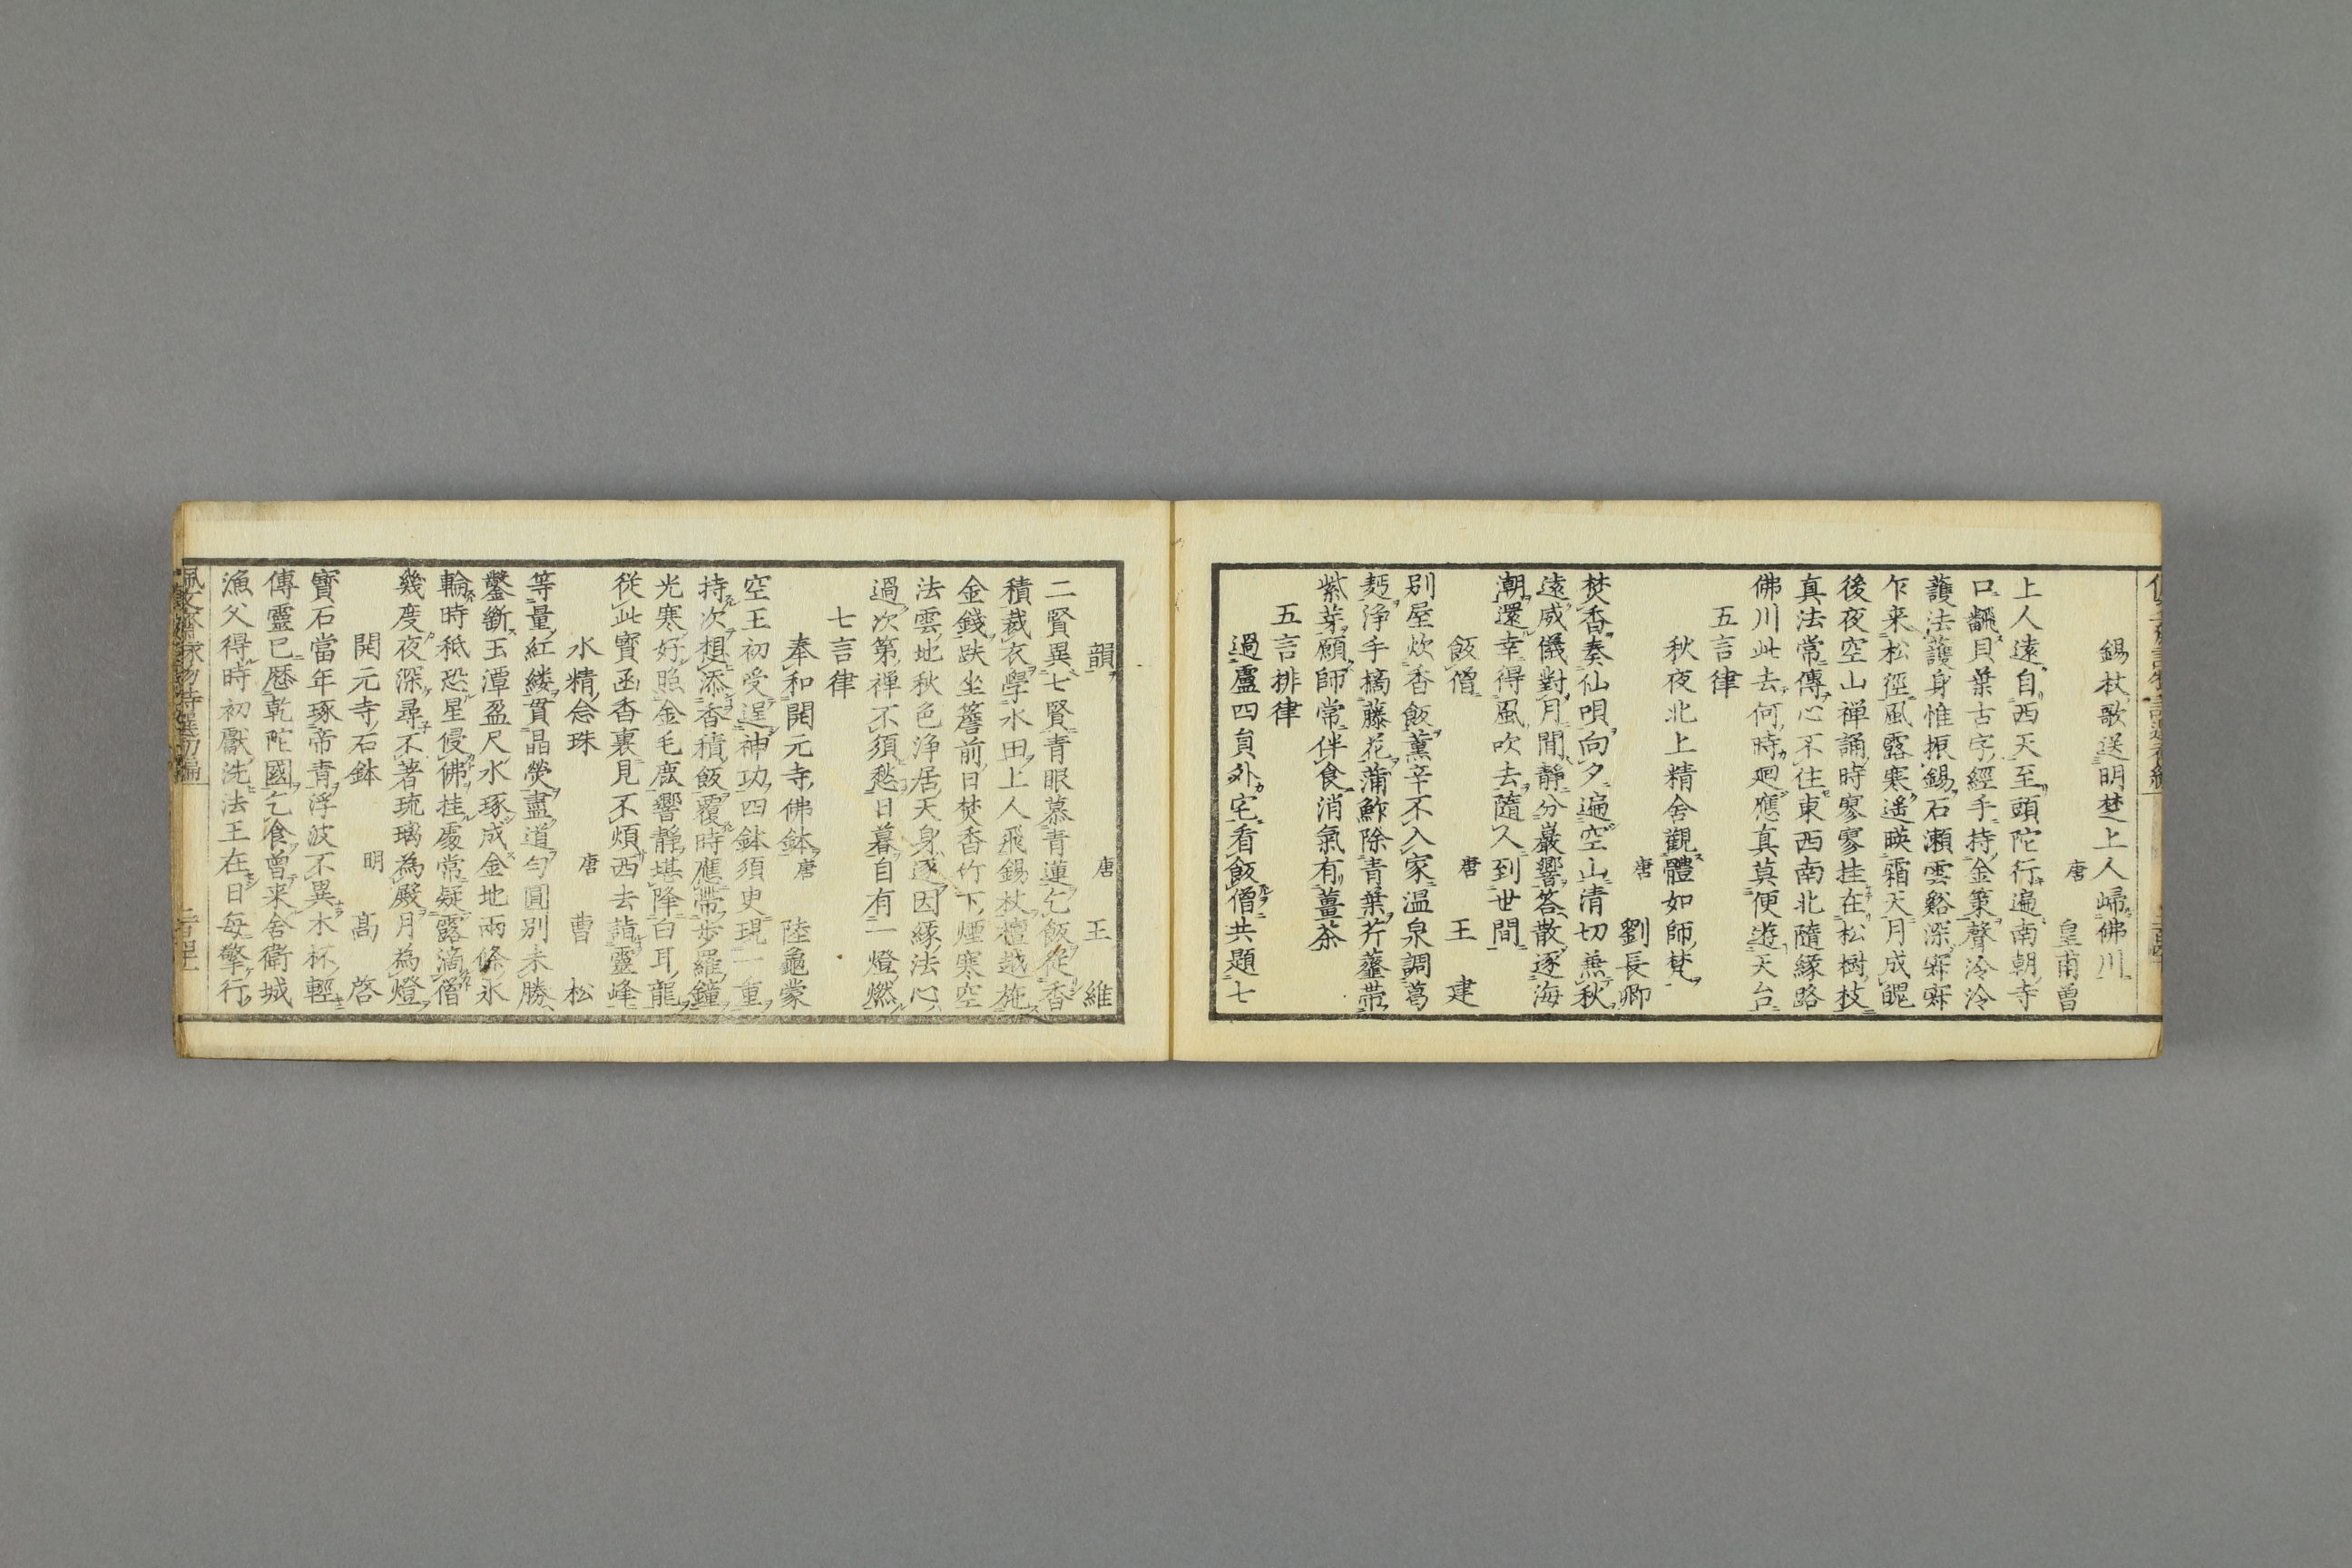 錫杖歌送明楚上人歸佛川
唐 皇甫曽
上人遠自西天至頭陀行遍南朝寺
口飜貝葉古字經手持金策聲泠泠
護法護身惟振錫石瀬雲谿深寂寂
乍来松徑風露寒遙暎霜天月成魄
後夜空山禅誦時寥寥挂在松樹枝
真法常傳心不住東西南北隨緣路
佛川此去何時廻應真莫便遊天台
五言律
秋夜北上精舍觀體如師梵
唐 劉長卿
焚香奏仙唄向夕遍空山清切兼秋
遠威儀對月閒靜分巖響答散逐海
潮還幸得風吹去隨久到世間
飯僧 唐 王建
别屋炊香飯薫辛不入家温泉調葛
麪浄手摘藤花蒲鮓除青葉芥虀帶
紫芽願師常伴食消氣有薑茶
五言排律
過盧四員外宅看飯僧共題七
韻 唐 王維
二賢異七賢青眼慕青蓮乞飯從香
積裁衣學水田上人飛錫杖檀越施
金錢趺坐簷前日焚香竹下煙寒空
法雲地秋色浄居天身逐因緣法心
過次第禅不須愁日暮自有一燈燃
七言律
奉和開元寺佛鉢 唐 陸龜蒙
空王初受逞神功四鉢須史現一重
持次想添香積飯覆時應帶步羅鐘
光寒好照金毛鹿響靜堪降白耳龍
從此寳函香裏見不煩西去詣靈峰
水精念珠 唐 曹松
等量紅縷貫晶熒盡道勻圓別未勝
鑿斷玉潭盈尺水琢成金地兩條氷
輪時秪恐星侵佛挂處常疑露滴僧
幾度夜深尋不著琉璃為殿月為燈
開元寺石鉢 明 髙啓
寳石當年琢帝青浮波不異木杯輕
傳靈已歴乾陀國乞食曽来舍衛城
漁父得時初獻洗法王在日每擎行